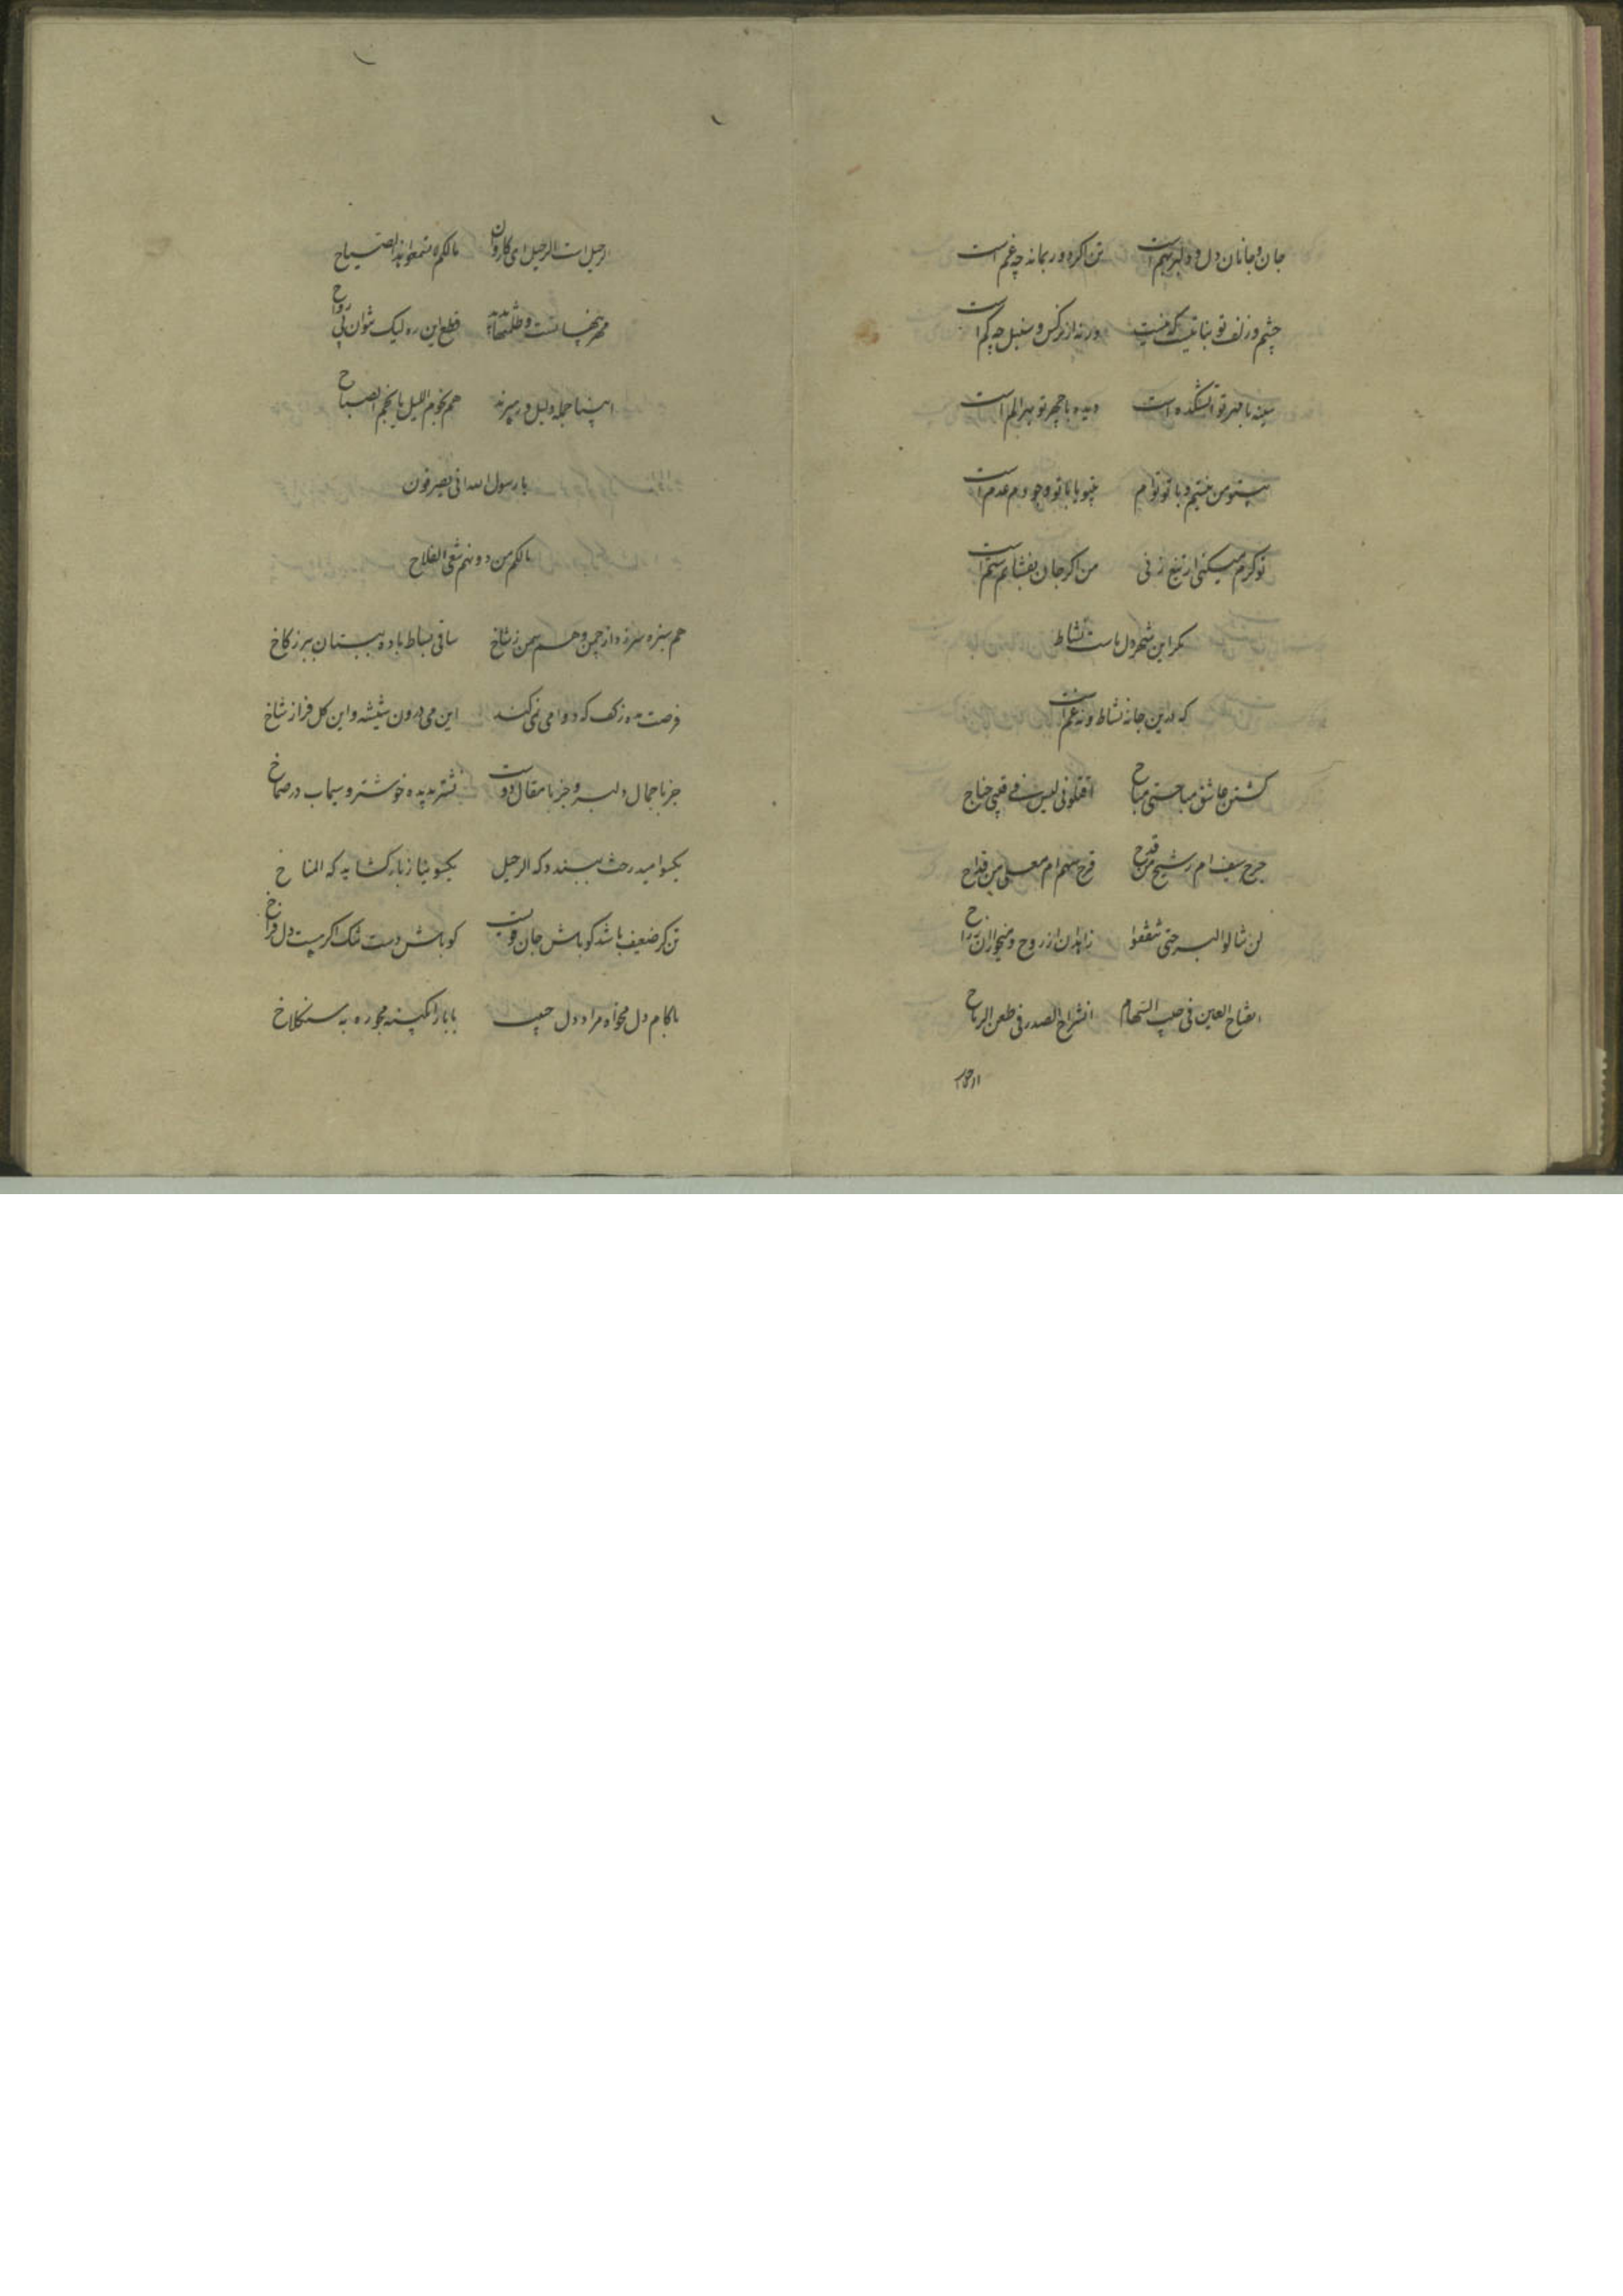 جان و جانان دل و دلبر بهم است تن اگر دور بماند چه غم است
چشم و زلف تو بنا نیست که نیست ورنه از نرگس و سنبل چه کم است
سینه با مهر تو آتشکده است دیده با چهر تو است
من نیستم و با تو توام با تو وجودم عدم است
تو کرم میکنی ار تیغ زنی من اگر جان بفشانم ستم است
مگر این شهر دل ماست نشاط
که در این جا نه نشاط و نه غم است
کشتن عاشق مباحستی مباح اقتلونی لیس فی قتلی جناح
جرح سیف ام رشیح من قدح قرح سهم ام معلی من قداح
لن تنالوا البر حتی تنفقوا زاهدان از روح و میخواران ز راح
انفتاح العین فی السهام انشراح الصدر فی طعن الرماح
الرحیل
الرحیل است الرحیل ای کاروان مالکم لا تسمعوا هذا الصیاح
قطع این ره لیک نتوان بی رواح
اینها جمله دلیل و رهبرند هم نجوم اللیل یا نجم الصباح
یا رسول الله انی تصرفون
مالکم من دونهم نبغی الفلاح
هم سبزه سر زد از چمن و هم سمن ز شاخ ساقی بساط باده ببستان بر ز کاخ
فرصت مده ز کف که دوامی نمی کند این می درون شیشه و این گل فراز شاخ
جز با جمال دلبر و جز با مقال دوست نشتر بدیده خوشتر و سیماب در صماخ
یکسو امید رخت ببندد که الرحیل یکسو نیاز بار گشاید که المناخ
تن گر ضعیف باشد گو باش جان قویست گو باش دست تنگ اگر هست دل فراخ
ناکام دل مخواه مراد دل حبیب با بار آبگینه مجو ره به سنگلاخ